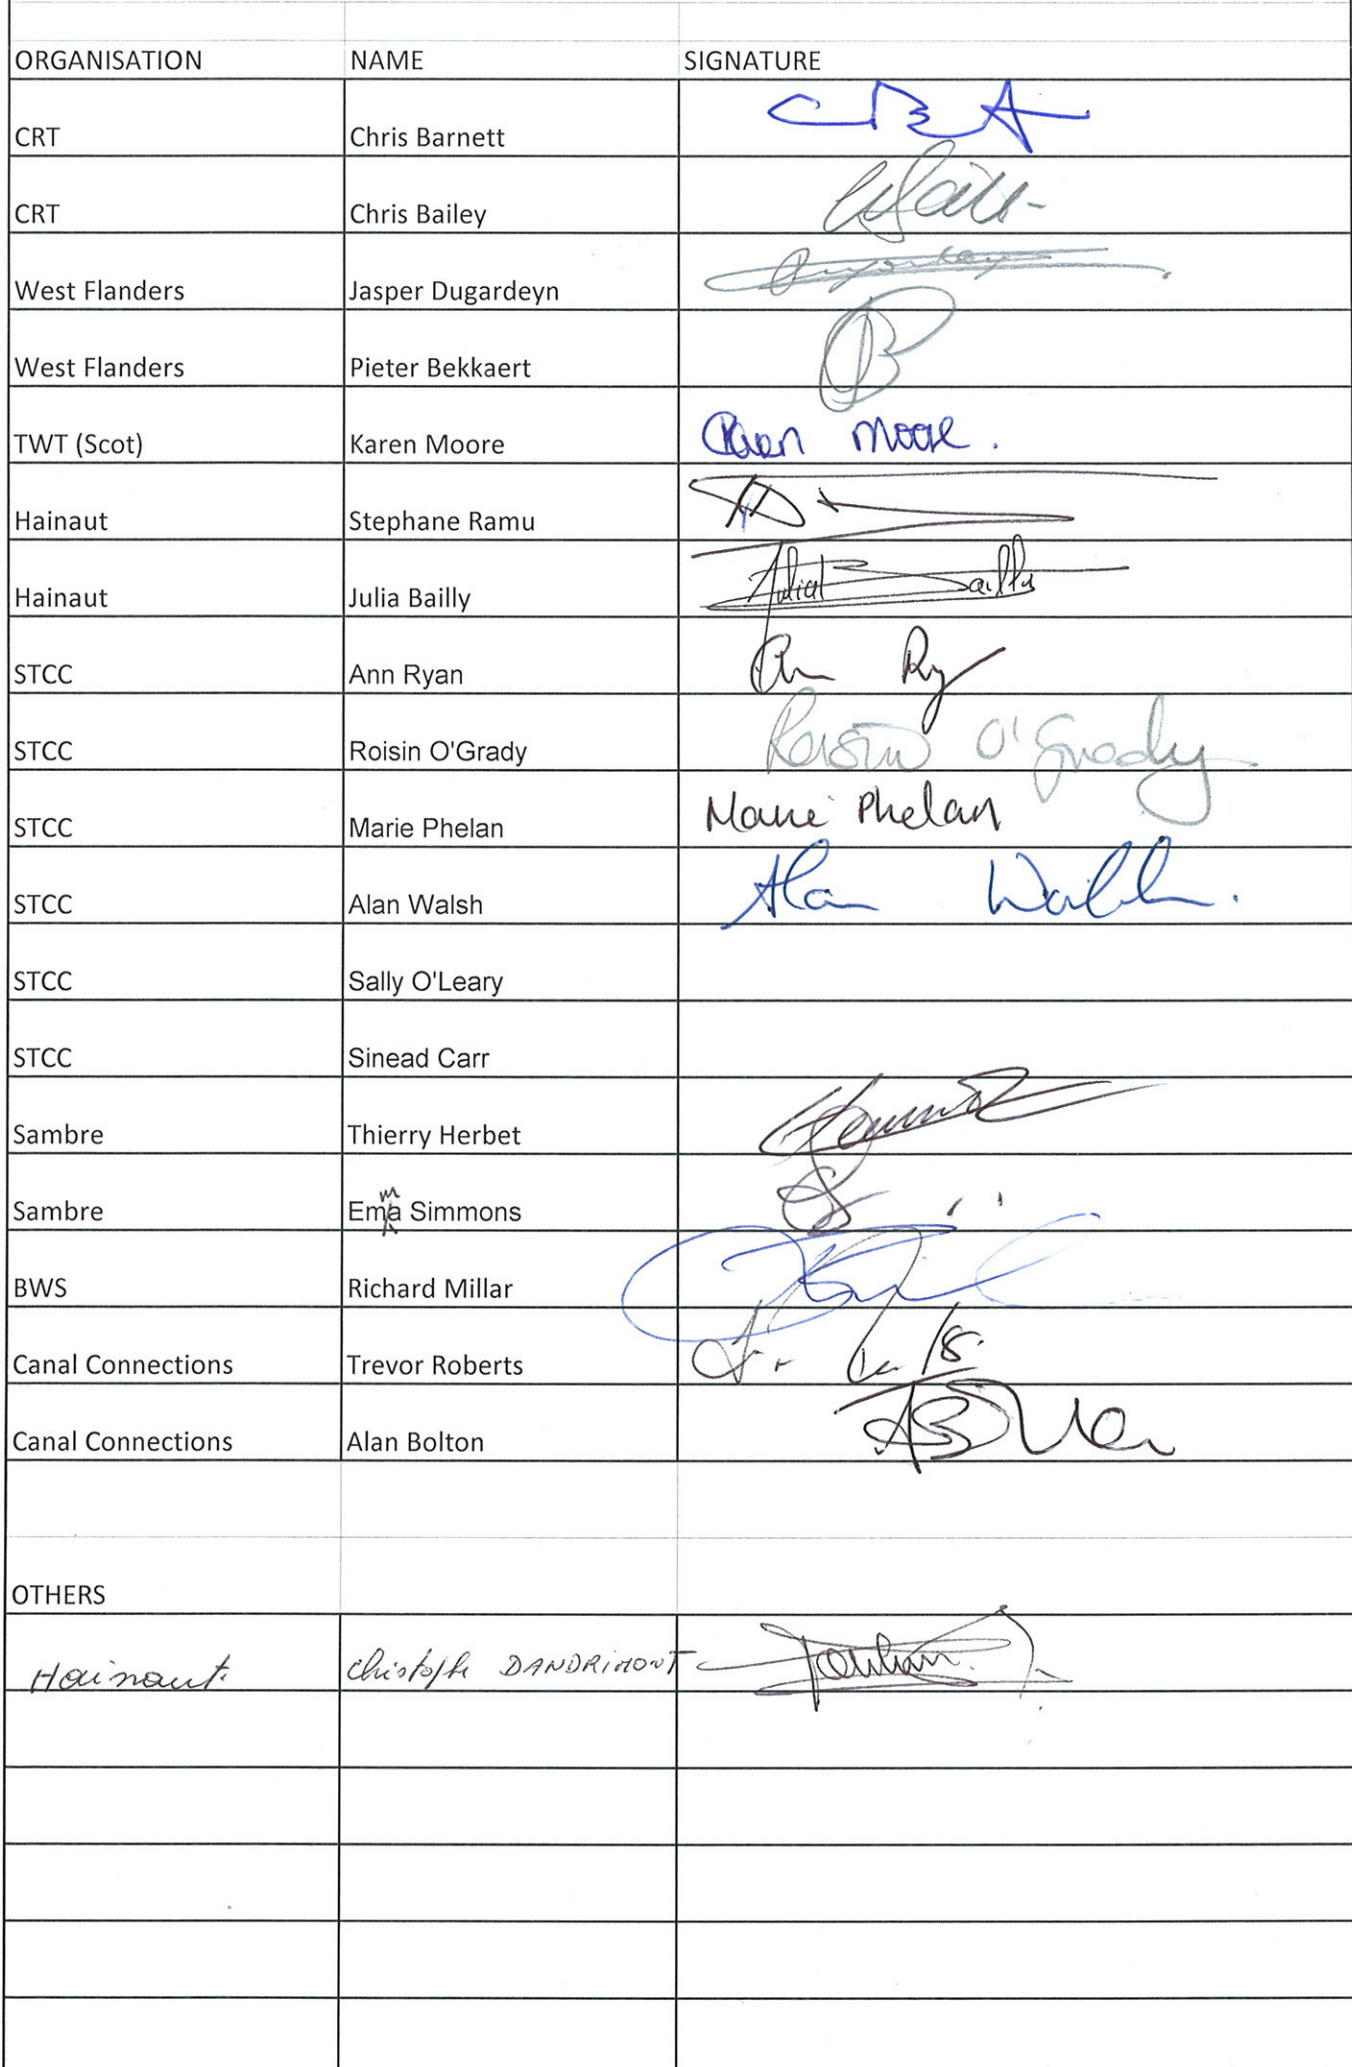 ORGANISATION NAME SIGNATURE
CRT Chris Barnett
CRT Chris Bailey
West Flanders Jasper Dugardeyn
West Flanders Pieter Bekkaert
TWT (Scot) Karen Moore Karen Moore.
Hainaut Stephane Ramu
Hainaut Julia Bailly Julia Bailly
STCC Ann Ryan
STCC Roisin O'Grady Roisin O'Grady
STCC Marie Phelan Marie Phelan
STCC Alan Walsh Alan Walsh.
STCC Sally O'Leary
STCC Sinead Carr
Sambre Thierry Herbet
m
Sambre Ema Simmons
BWS Richard Millar
Canal Connections Trevor Roberts
Canal Connections Alan Bolton
OTHERS
Hainaut Christophe DANDRIMONT